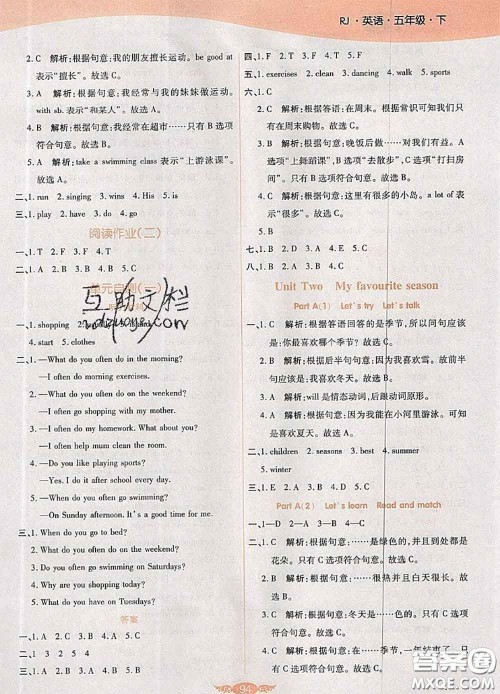 RJ·英语·五年级·下
2. C 解析:根据句意:我的朋友擅长运动。be good at
表示“擅长”。故选C。
3. A 解析:根据句意:我经常与我的妹妹做运动。
with sb. 表示“和某人”。故选A。
4. B 解析:根据句意:我经常在超市……只有B选项
符合句意。故选B。
5. A 解析:take a swimming class 表示“上游泳课”。
故选A。
二、1. run 2. singing 3. wins 4. His 5. is
三、1. play 2. have 3. go 4. do
阅读作业(二)
一、1. T 2. F 3. F 4. T
二、1. A 2. B 3. C 4. B
单元自测(一)
一、1. shopping 2.
4. start 5. clothes
二、1. —What do you often do in the morning?
—I often do morning exercises.
2. —What do you often do on the weekend?
—I often go shopping with my mother.
3. —I often do my homework. What about you?
—I often help mum clean the room.
4. —Do you like playing sports?
—Yes. I do it after school every day.
5. —When do you often go swimming?
—On Sunday afternoon. It's a good time for me.
三、1. When do you go to bed?
2. What do you often do on the weekend?
3. Do you often go swimming on Saturdays?
4. Why are you shopping today?
5. What do you have on Tuesdays?
答案
一、1. C 2. A 3. B 4. A 5. C
94
四、1. F 2. T 3. T 4. F
五、1. exercises 2. clean 3. dancing 4. walk 5. sports
六、1. C 解析:根据答语:在周末。根据常识可知我们只
有在周末购物。故选C。
2. B 解析:根据句意:晚饭后做……对我们有益。A
选项“上舞蹈课”,B选项“去散步”,C选项“打扫房
间”。只有B选项符合句意。故选B。
3. A 解析:根据句意:这里有很多的小岛。a lot of 表
示“很多”。故选A。
七、1. B 2. D 3. A 4. C
八、1. B 2. C 3. A 4. B
Unit Two My favourite season
Part A(1) Let's try Let's talk
一、1. B 解析:根据答语回答的是季节,所以问句应该
是:你最喜欢哪个季节?故选B。
2. A 解析:根据后半句句意:因为我喜欢雪。故前半
句应该是:我喜欢冬天。故选A。
3. A 解析:will是情态动词,后跟动词原形。故选A。
4. A 解析:根据句意:因为我能在小河里游泳。可知
是喜欢夏天。故选A。
二、1. children 2. seasons 3. best 4. because
5. winter
三、1. E 2. D 3. A 4. C 5. B
Part A(2) Let's learn Read and match
一、1—D 2—A 3—B 4—C
二、1. C 解析:根据句意:……是绿色的,并且到处都是
花朵。只有C选项符合句意。故选C。
2. B 解析:根据句意:……很热并且白天很长。故选
B。